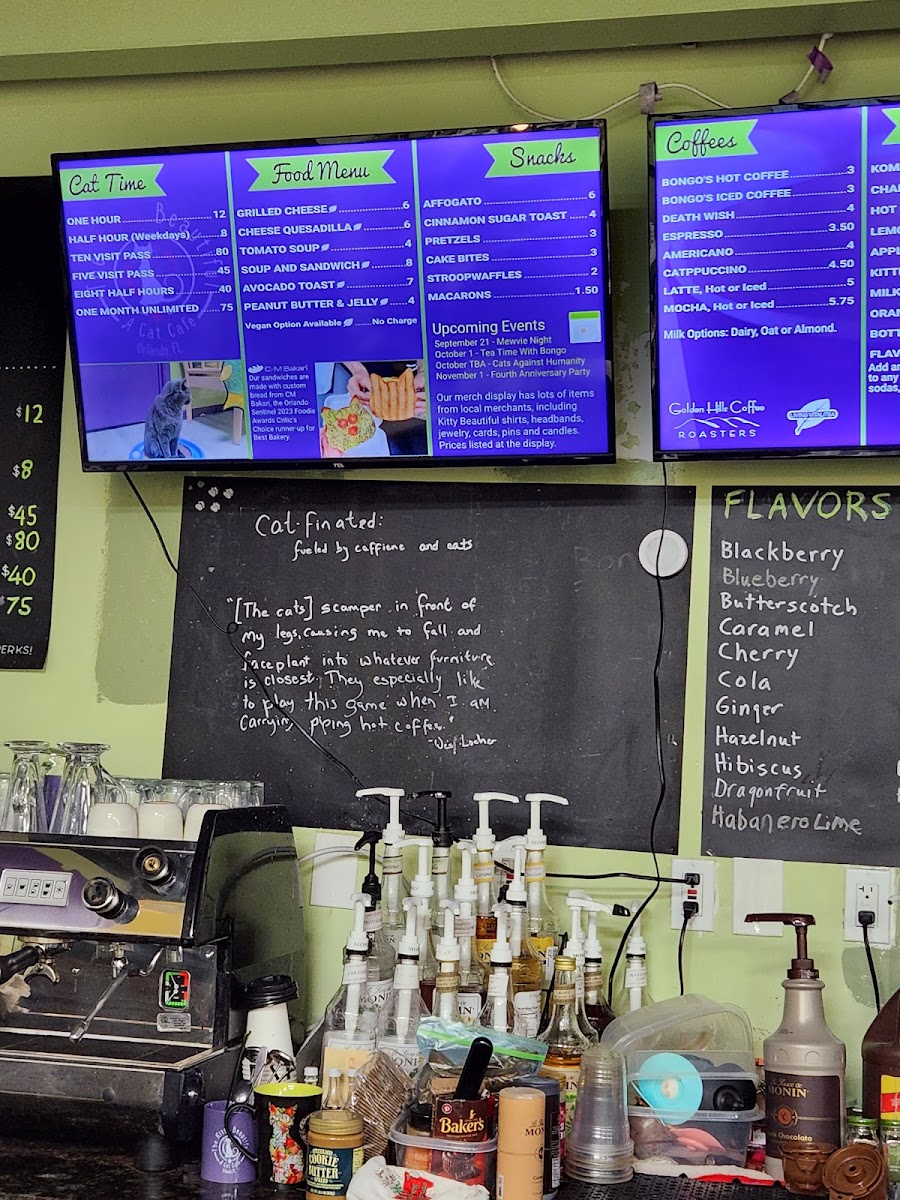 Cat Time
ONE HOUR 12
HALF HOUR (Weekdays) 8
TEN VISIT PASS 80
FIVE VISIT PASS 45
EIGHT HALF HOURS 40
ONE MONTH UNLIMITED 75
A Cat Cafe
Orlando FL
Food Menu
GRILLED CHEESE 6
CHEESE QUESADILLA 6
TOMATO SOUP 4
SOUP AND SANDWICH 8
AVOCADO TOAST 7
PEANUT BUTTER & JELLY 4
Vegan Option Available No Charge
C-M Bakari
Our sandwiches are
made with custom
bread from CM
Bakari, the Orlando
Sentinel 2023 Foodie
Awards Critic's
Choice runner-up for
Best Bakery.
Snacks
AFFOGATO 6
CINNAMON SUGAR TOAST 4
PRETZELS 3
CAKE BITES 3
STROOPWAFFLES 2
MACARONS 1.50
Upcoming Events
September 21 - Mewvie Night
October 1 - Tea Time With Bongo
October TBA - Cats Against Humanity
November 1 - Fourth Anniversary Party
Our merch display has lots of items
from local merchants, including
Kitty Beautiful shirts, headbands,
jewelry, cards, pins and candles.
Prices listed at the display.
TCL
Coffees
BONGO'S HOT COFFEE 3
BONGO'S ICED COFFEE 3
DEATH WISH 4
ESPRESSO 3.50
AMERICANO 4
CATPPUCCINO 4.50
LATTE, Hot or Iced 5
MOCHA, Hot or Iced 5.75
Milk Options: Dairy, Oat or Almond.
Golden Hills Coffee
ROASTERS
LIVING VITALITEA
KOM
CHA
HOT
LEMO
APPL
KITT
MILK
ORAN
BOTT
FLAV
Add an
to any
sodas,
$12
$8
$45
$80
$40
$75
PERKS!
Cat-finated:
fueled by caffiene and cats
"[The cats] scamper in front of
my legs, causing me to fall and
faceplant into whatever furniture
is closest. They especially like
to play this game when I am
carrying piping hot coffee."
FLAVORS
Blackberry
Blueberry
Butterscotch
Caramel
Cherry
Cola
Ginger
Hazelnut
Hibiscus
Dragonfruit
Habanero Lime
MONIN
Baker's
COOKIE
BUTTER
MONIN
Chocolate